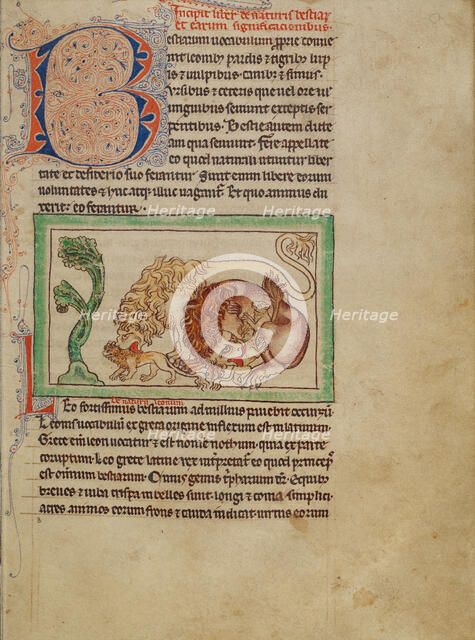 Incipit liber de naturis bestiar
et earum significationibus
Bestiarum uocabulum proprie conue
nit leonibus pardis et tigribus lup
is et uulpibus canibus et simiis.
Vrsibus et ceteris que uel ore uel
unguibus seuiunt exceptis ser
pentibus. Bestie autem dicte
a ui qua seuiunt. Fere appellat
eo quod naturali utuntur liber
tate et desiderio suo ferantur. Sunt enim libere eorum
uoluntates et huc atque illuc uagantur. Et quo animus du
xerit: eo feruntur.
Heritage Heritage Heritage
Heritage Heritage Heritage
de natura leonum
Leo fortissimus bestiarum ad nullius pauebit occursu
Leonis uocabulum ex greca origine inflexum est in latinum.
Grece enim leon uocatur et est nomen nothum. quia ex parte
corruptum. Leo grece latine rex interpretatur eo quod princeps
est omnium bestiarum. Cuius genus tripharium
breues et iuba crispa inbelles sunt. longi et coma simplici
acres animos eorum frons et cauda indicat. uirtus eorum